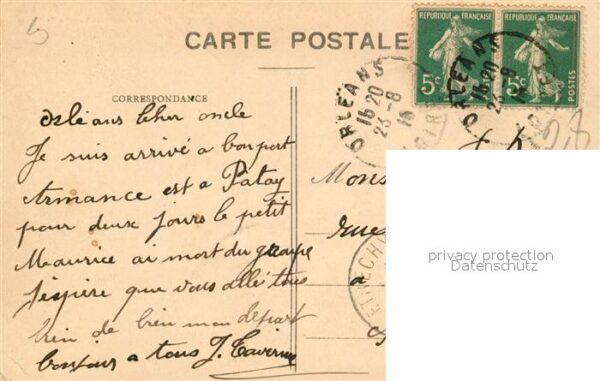 5
CARTE POSTALE
REPUBLIQUE FRANÇAISE
5c
POSTES
REPUBLIQUE FRANÇAISE
5c
POSTES
ORLEANS
16 20
23-8
16
LOIRET
ORLEANS
16 20
23-8
CORRESPONDANCE
Orléans Cher oncle
Je suis arrivé a bon port
Armance est a Patay
pour deux jours le petit
Maurice ai mort du groupe
J'espère que vous allé tous
bien de bien mon départ
bonjour a tous J. Taverne
Mons
rue
a
privacy protection
Datenschutz